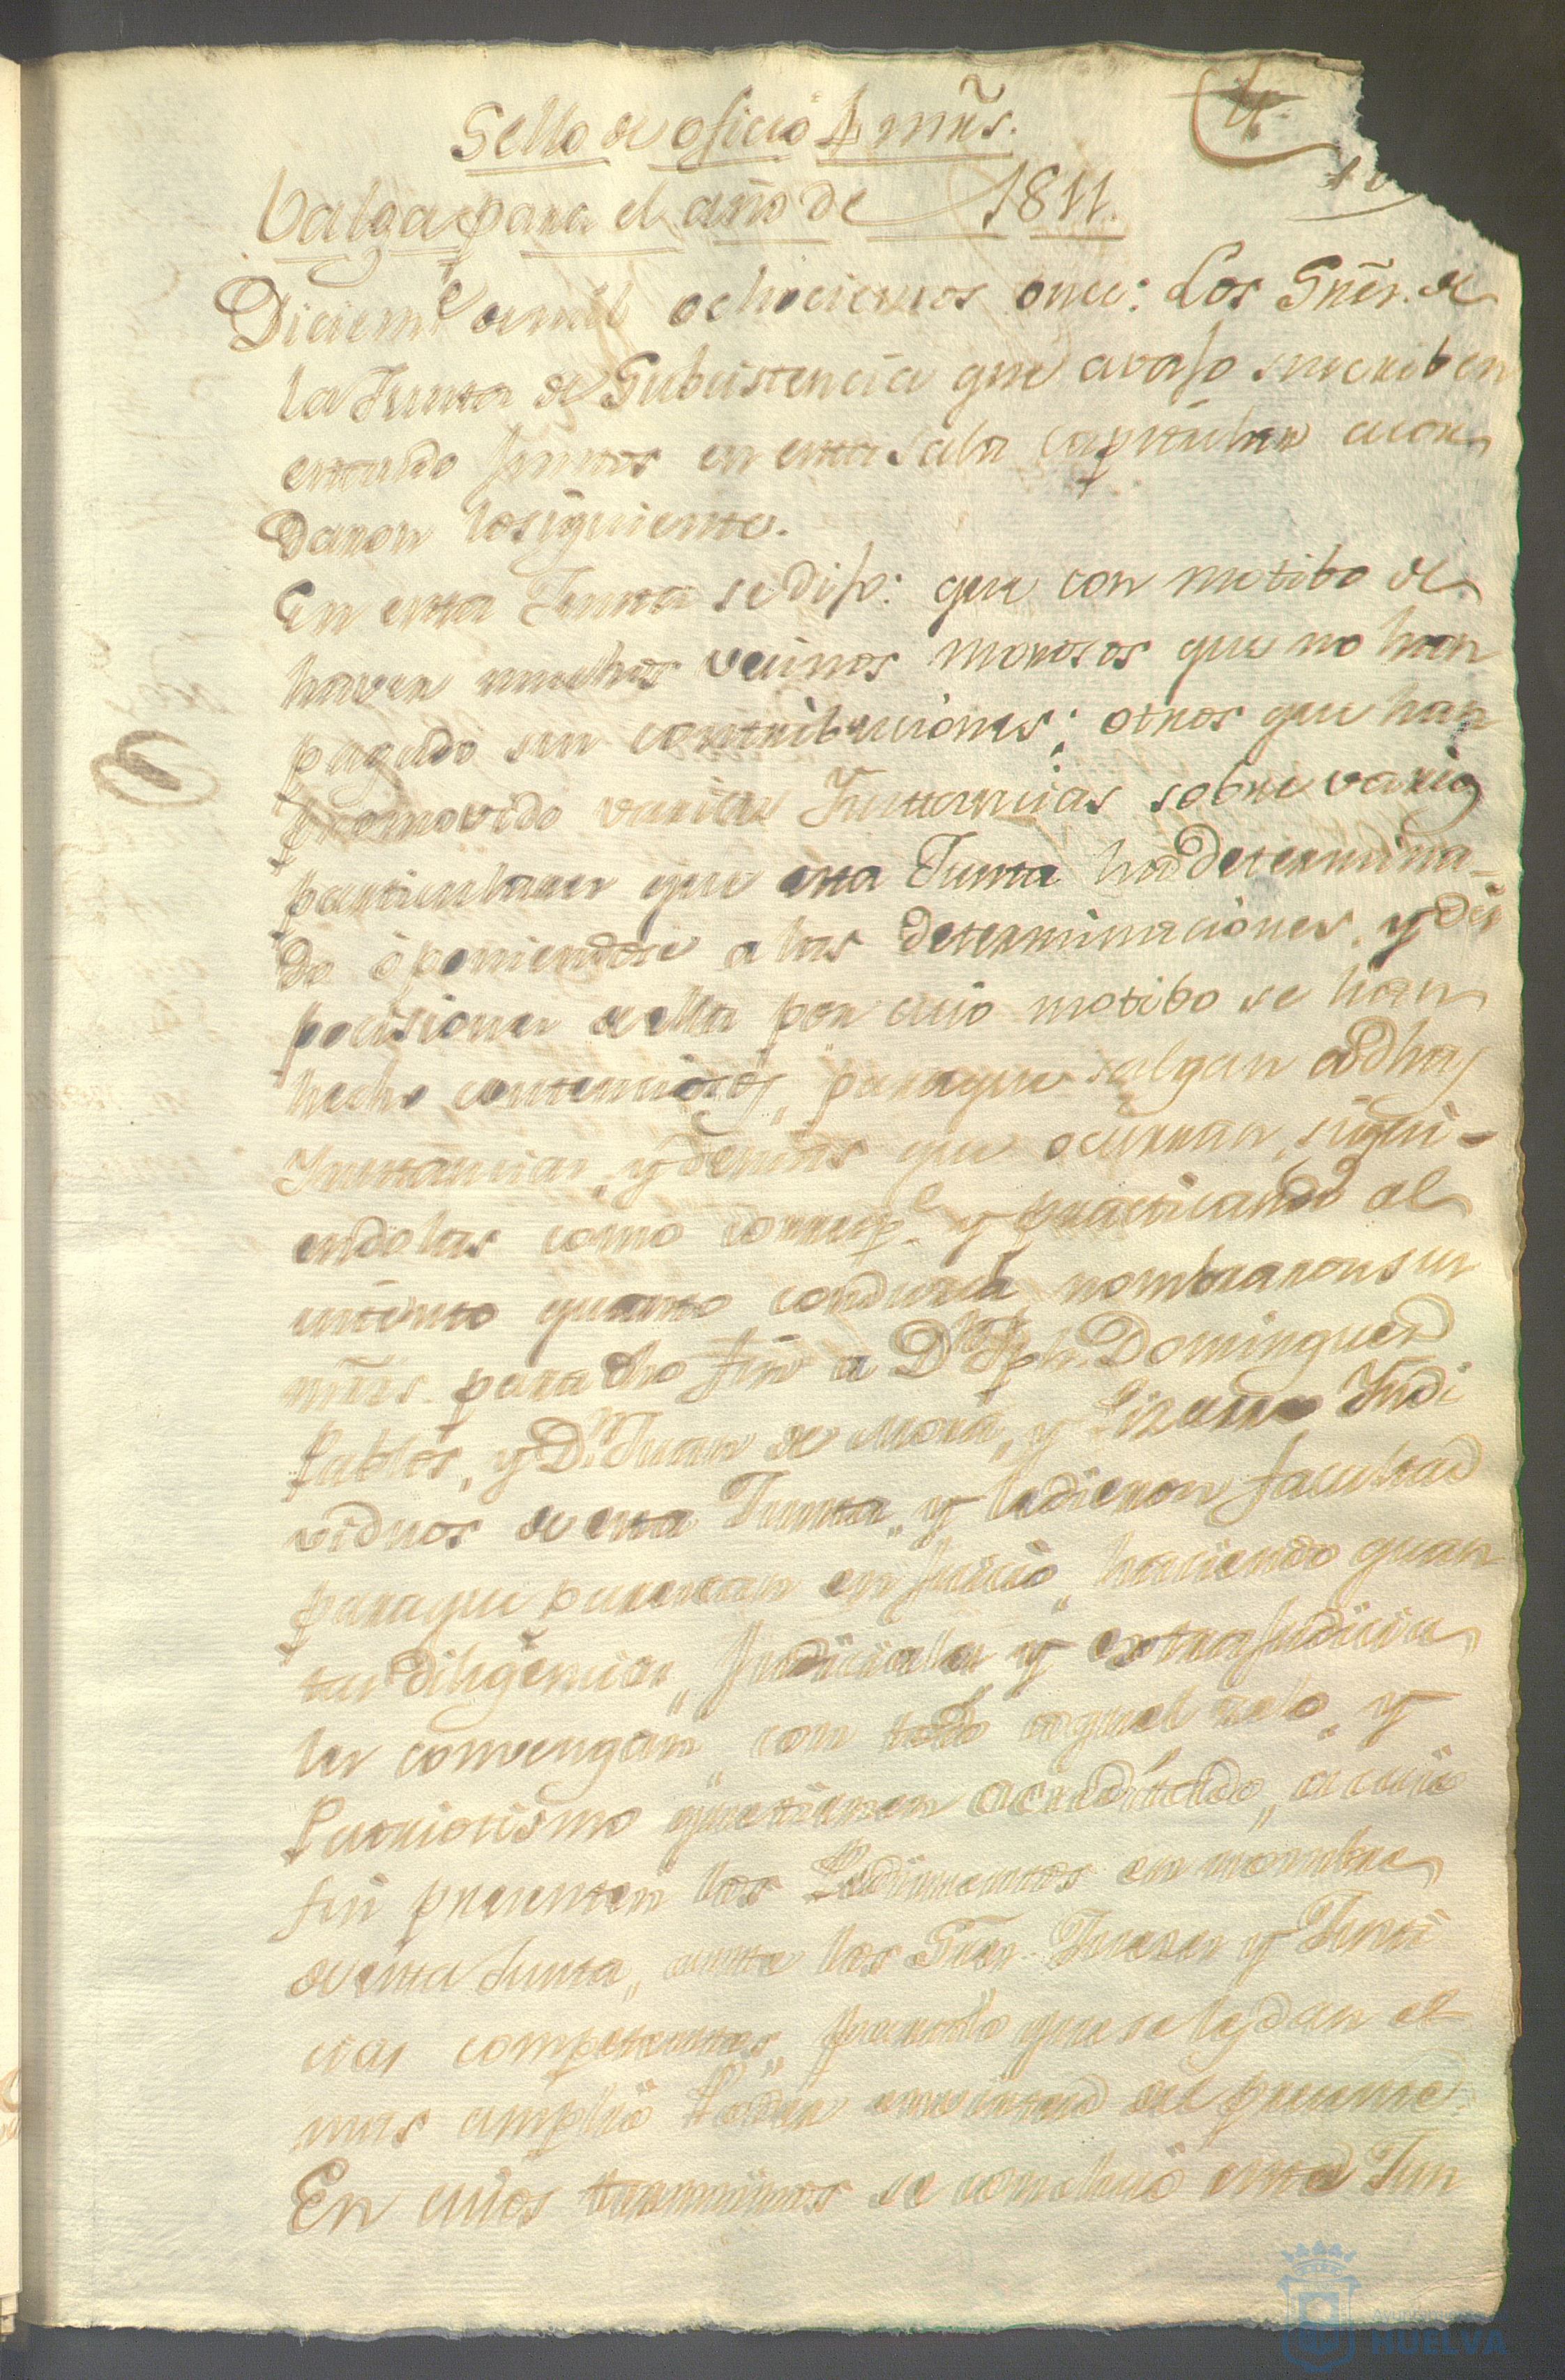 Sello de oficio 4 mr̃s.
Valga para el año de 1811.
Diciemᵉ de mil ochocientos once: Los Sres. de
la Junta de Subsistencia que avajo suscriben
estando juntos en esta Sala capitular acor
daron lo siguiente.
En esta Junta se dijo: que con motibo de
haver muchos vecinos morosos que no han
pagado sus contribuciones; otros que han
promovido varias Instancias sobre varios
particulares que esta Junta ha determina-
do oponiendose a las determinaciones, y dis
pocisiones de ella por cuio motibo se han
hecho contenciosos, para que salgan a dhas
Instancias, y demas que ocurran, sigui-
endolas como corresp.ᵉ y practicando al
intento quanto conduzca nombraron sus
mrs. para dho fin a Dⁿ Jph. Dominguez
Pablos, y Dⁿ Juan de Mora, y Lizana Indi
viduos de esta Junta, y le dieron facultad
para que parezcan en juicio, haciendo quan
tas diligencias judiciales y extrajudicia
les convengan con todo aquel zelo, y
Patriotismo que tienen acreditado, a cuio
fin presenten los Pedimentos en nombre
de esta Junta, ante los Sres. Jueses y Justi
cias competentes, para todo que se les dan el
mas amplio Poder en virtud del presente
En cuios terminos se concluió esta Jun
HUELVA